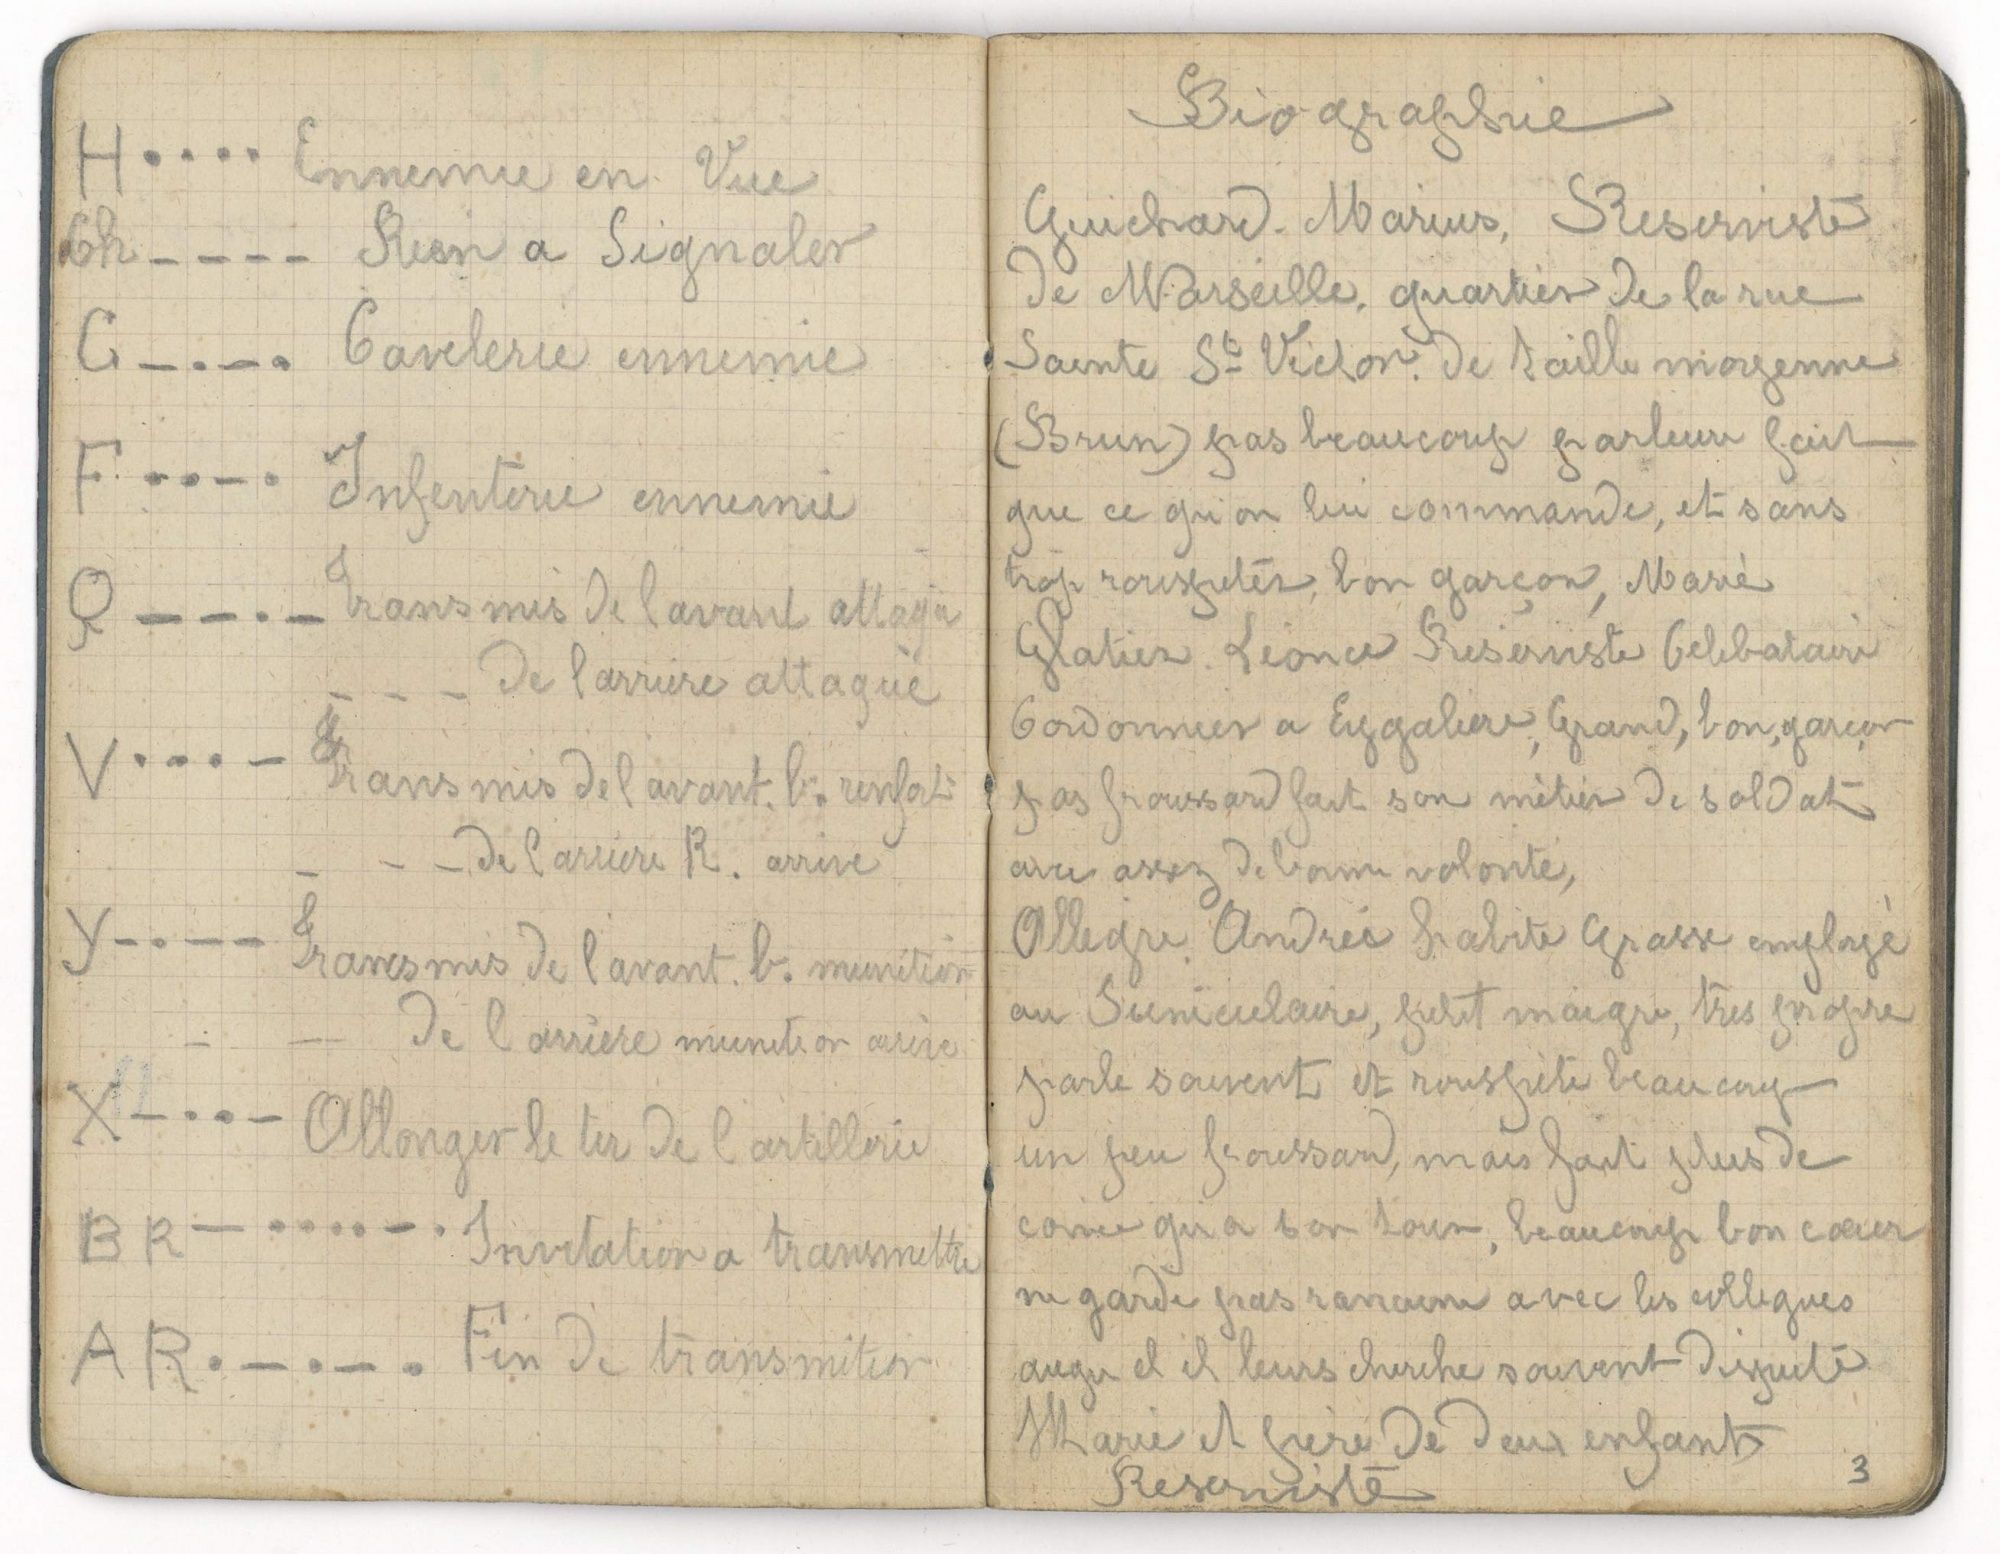 H •••• Ennemie en Vue
Ch – – – – Rien a Signaler
C – • – • Cavelerie ennemie
F •• – • Infenterie ennemie
Q – – • – Transmis de l'avant attaqu
– – – de l'arriere attaqué
V ••• – Transmis de l'avant. b. renfort
– – – de l'arriere R. arrive
Y – • – – Transmis de l'avant. b. munition
– – de l'arrière munition arive
X – •• – Allonger le tir de l'artillerie
BR – ••••• – • Invitation a transmettre
AR • – • – • Fin de transmition
Biographie
Guichard. Marius, Reserviste
de Marseille. quartier de la rue
Sainte St Victor. de taille moyenne
(Brun) pas beaucoup parleur fait
que ce qu'on lui commande, et sans
trop rouspéter, bon garçon, Marié
Glatier. Léonce Réserviste Celebataire
Cordonnier a Eygaliere, Grand, bon, garçon
pas froussard fait son métier de soldat
avec assez de bonne volonté,
Allegre. André habite Grasse employé
au Funiculaire, petit maigre, très propre
parle souvent et rouspète beaucoup
un peu froussard, mais fait plus de
qu'a son tour, beaucoup bon cœur
ne garde pas rancune avec les collegues
auqu el il leurs cherche souvent dispute
Marié et père de deux enfants
Reserviste
3